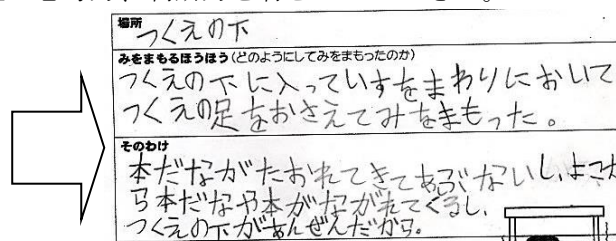 場所
つくえの下
みをまもるほうほう(どのようにしてみをまもったのか)
つくえの下に入っていすをまわりにおいて
つくえの足をおさえてみをまもった。
そのわけ
本だながたおれてきてあぶないし、よこか
ら本だなや本がながれてくるし、
つくえの下があんぜんだから。